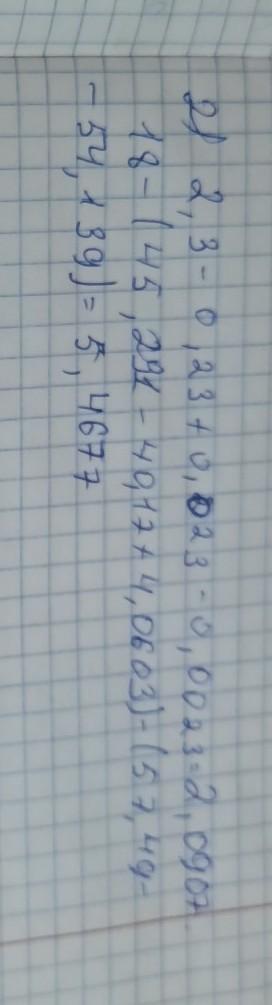 2) 2,3 - 0,23 + 0,023 - 0,0023 = 2,0907
18 - (45,291 - 40,17 + 4,0603) - (57,49 -
- 54,139) = 5,4677